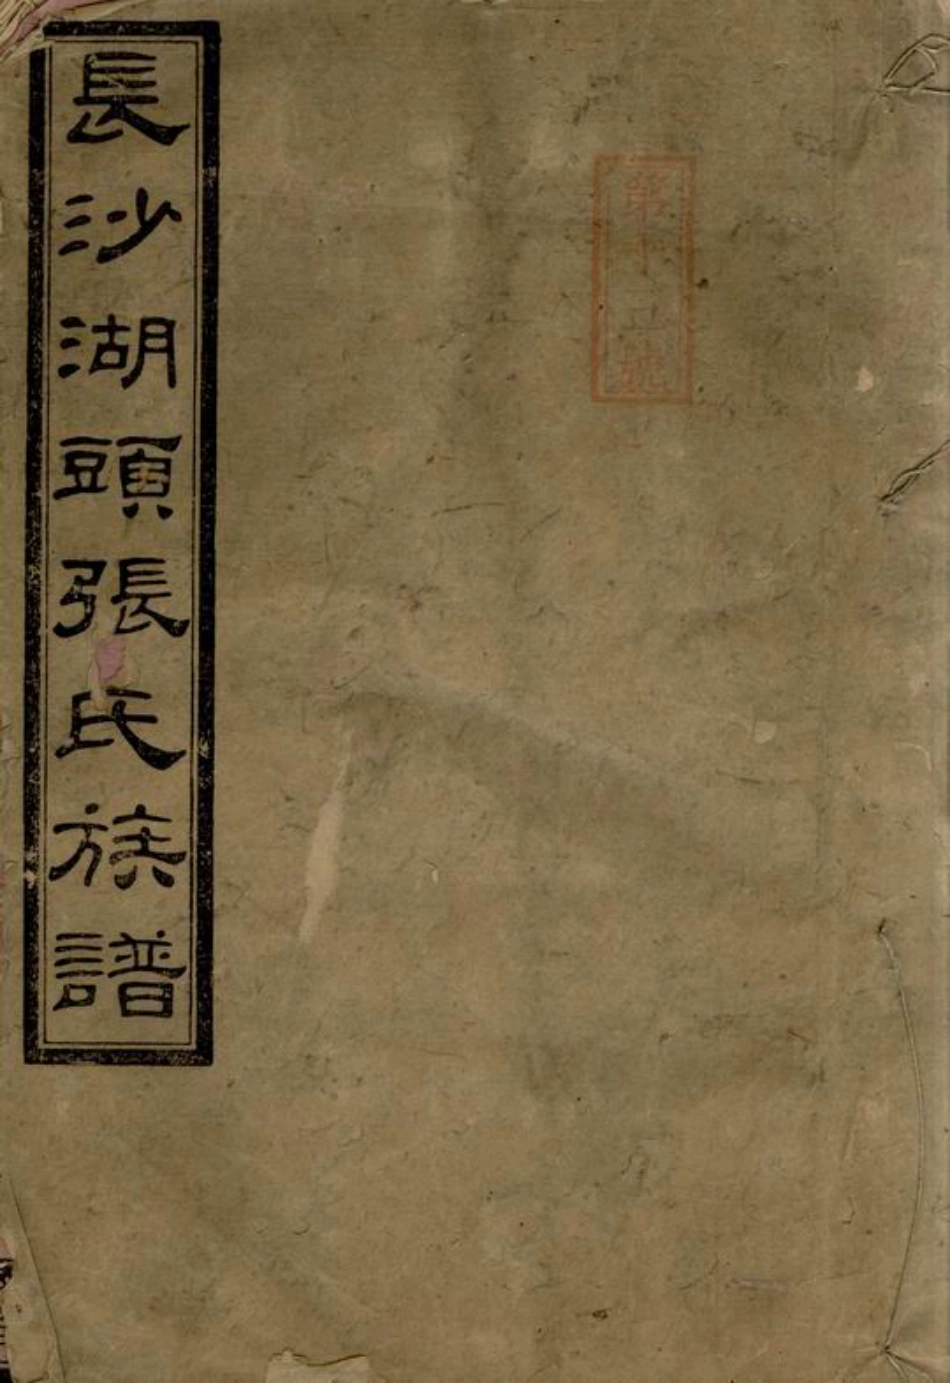 長沙湖頭張氏族譜
第十五號